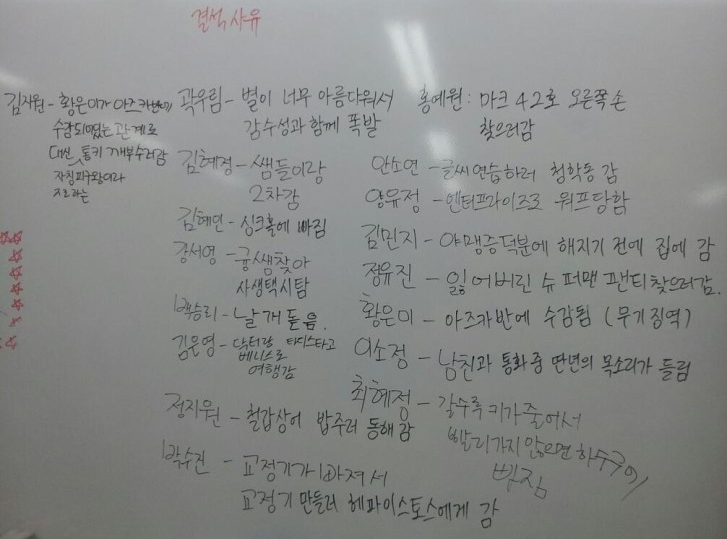 결석사유
김지원 - 황은미가 아즈카반에
수감되어있는 관계로
대신 통키 깨부수러감
자칭피구왕이라
지르라는
곽우림 - 별이 너무 아름다워서
감수성과 함께 폭발
김혜정 - 쌤들이랑
2차감
김혜민 - 싱크홀에 빠짐
강서영 - 궁쌤찾아
사생택시탐
백승리 - 날개 돋음.
김은영 - 닥터랑 타디스타고
베니스로
여행감
정지원 - 철갑상어 밥주러 동해 감
박수진 - 교정기가 빠져서
교정기 만들러 헤파이스토스에게 감
홍예원 : 마크 42호 오른쪽 손
찾으러감
안소연 - 글씨연습하러 청학동 감
양유정 - 엔터프라이즈로 워프당함
김민지 - 야맹증덕분에 해지기 전에 집에 감
정유진 - 잃어버린 슈퍼맨 팬티찾으러감.
황은미 - 아즈카반에 수감됨 (무기징역)
이소정 - 남친과 통화 중 딴년의 목소리가 들림
최혜정 - 갈수록 키가 줄어서
빨리가지 않으면 하수구에
빠짐